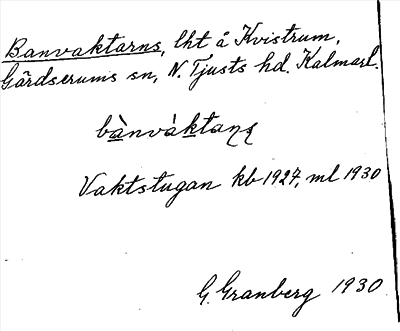 Banvaktarns, lht å Kvistrum,
Gärdserums sn, N. Tjusts hd. Kalmarl.
bànvàktaɳʂ
Vaktstugan kb 1927, ml 1930
G. Granberg 1930